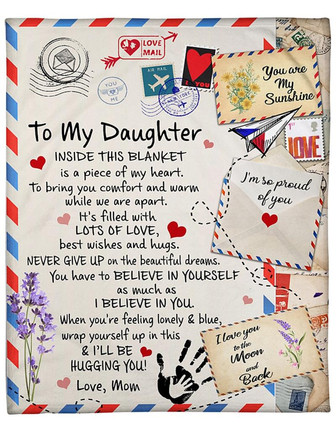 LOVE
MAIL
AIR MAIL
YOU
ME
I YOU
You are
My
Sunshine
LOVE
To My Daughter
INSIDE THIS BLANKET
is a piece of my heart.
To bring you comfort and warm
while we are apart.
It's filled with
LOTS OF LOVE,
best wishes and hugs.
NEVER GIVE UP on the beautiful dreams.
You have to BELIEVE IN YOURSELF
as much as
I BELIEVE IN YOU.
When you're feeling lonely & blue,
wrap yourself up in this
& I'LL BE
HUGGING YOU!
Love, Mom
I'm so proud
of you
I love you
to the
Moon
and
Back